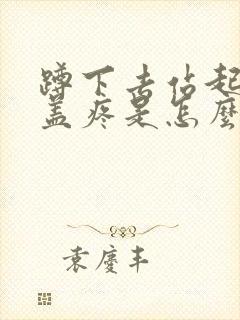 蹲下去站起
盖疼是怎麼
袁慶丰